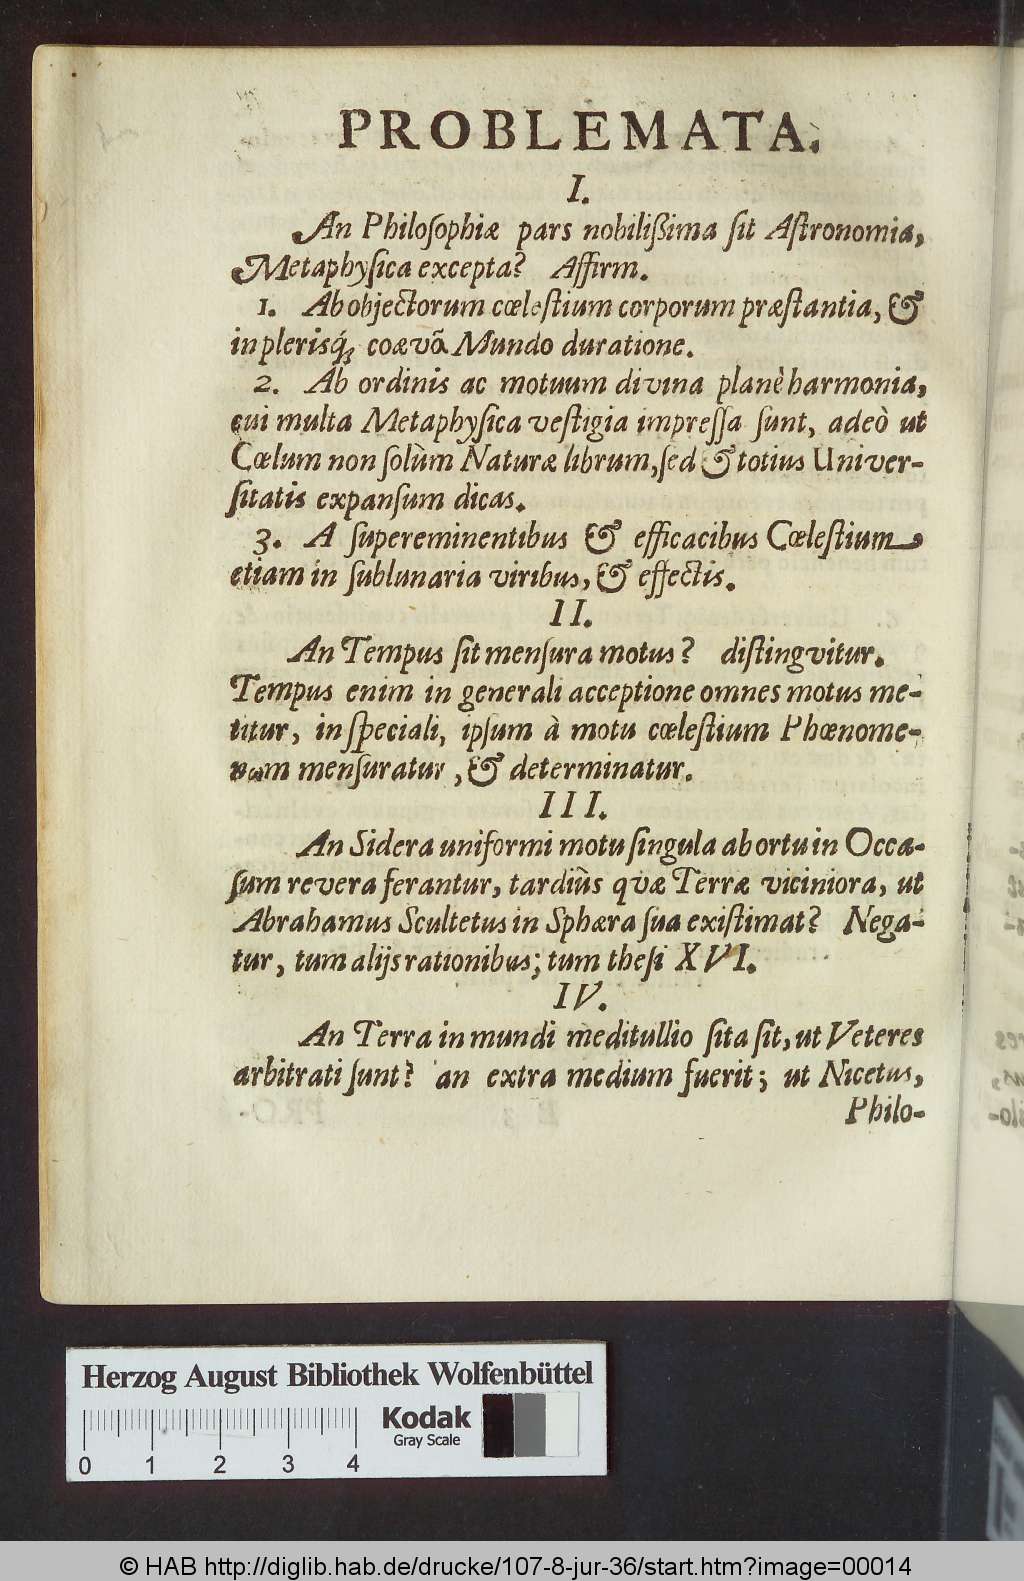 PROBLEMATA.
I.
An Philoſophiæ pars nobilißima ſit Aſtronomia,
Metaphyſica excepta? Affirm.
1. Ab objectorum cœleſtium corporum præſtantia, &
in pleriſq́; coævâ Mundo duratione.
2. Ab ordinis ac motuum divina planè harmonia,
cui multa Metaphyſica veſtigia impreſſa ſunt, adeò ut
Cœlum non ſolùm Naturæ librum, ſed & totius Univer-
ſitatis expanſum dicas.
3. A ſupereminentibus & efficacibus Cœleſtium
etiam in ſublunaria viribus, & effectis.
II.
An Tempus ſit menſura motus? diſtingvitur.
Tempus enim in generali acceptione omnes motus me-
titur, in ſpeciali, ipſum à motu cœleſtium Phœnome-
nωm menſuratur, & determinatur.
III.
An Sidera uniformi motu ſingula ab ortu in Occa-
ſum revera ferantur, tardiùs qvæ Terræ viciniora, ut
Abrahamus Scultetus in Sphæra ſua exiſtimat? Nega-
tur, tum alijs rationibus; tum theſi XVI.
IV.
An Terra in mundi meditullio ſita ſit, ut Veteres
arbitrati ſunt? an extra medium fuerit; ut Nicetus,
Philo-
Herzog August Bibliothek Wolfenbüttel
Kodak
Gray Scale
0 1 2 3 4
© HAB http://diglib.hab.de/drucke/107-8-jur-36/start.htm?image=00014